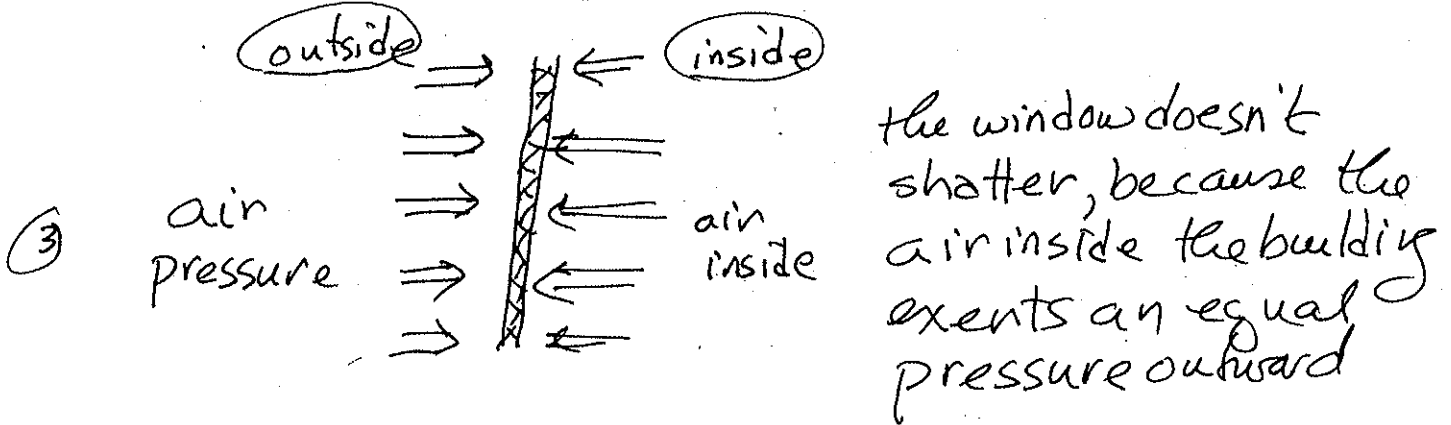 outside
inside
③
air
pressure
air
inside
the window doesn't
shatter, because the
air inside the building
exerts an equal
pressure outward